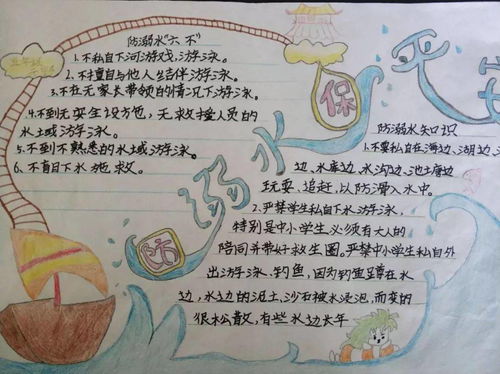 防溺水"六不"
1.不私自下河游戏、游泳。
2.不擅自与他人结伴游泳。
3.不在无家长带领的情况下游泳。
4.不到无安全设施,无救援人员的
水土或游泳。
5.不到不熟悉的水土域游泳。
6.不盲目下水施救。
防溺水
保平
防溺水知识
1.不要私自在海边、湖边、
边、水库边、水沟边、池土唐边
玩耍、追赶,以防滑入水中。
2.严禁学生私自下水游泳,
特别是中小学生必须有大人的
陪同并带好救生圈。严禁中小学生私自外
出游泳、钓鱼,因为钓鱼蹲在水
边,水边的泥土、沙石被水浸泡,而变的
很松散,有些水边长年